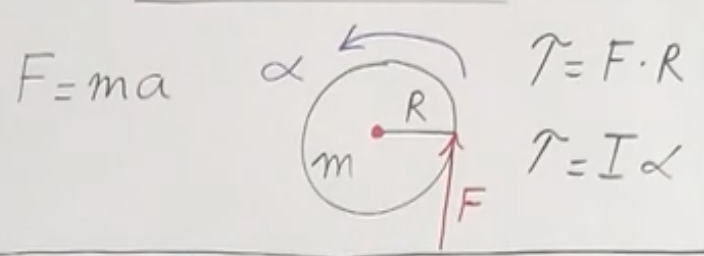 F = ma
α
R
m
F
τ = F · R
τ = I α